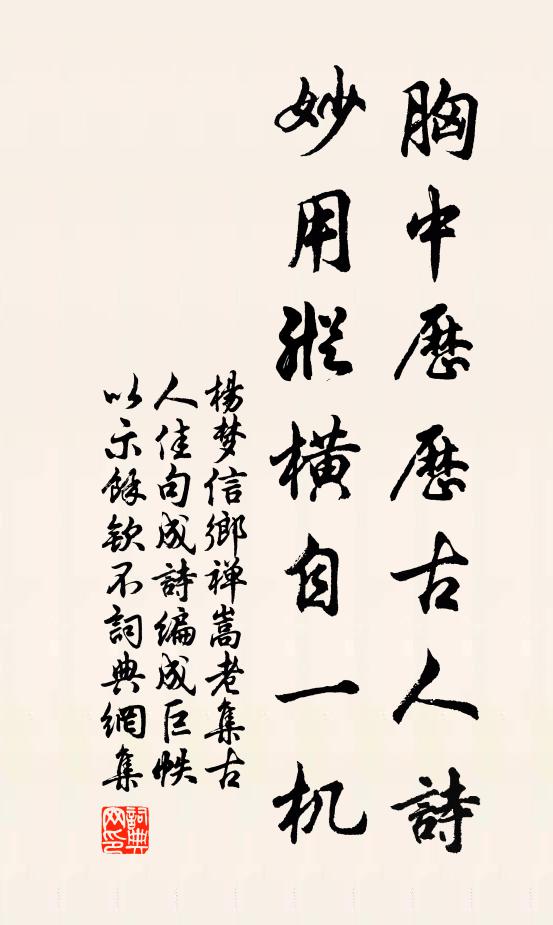 胸中歷歷古人詩
妙用縱橫自一机
楊梦信鄉禅嵩老集古
人佳句成詩編成巨帙
以示餘欽不詞典網集
詞典
网印